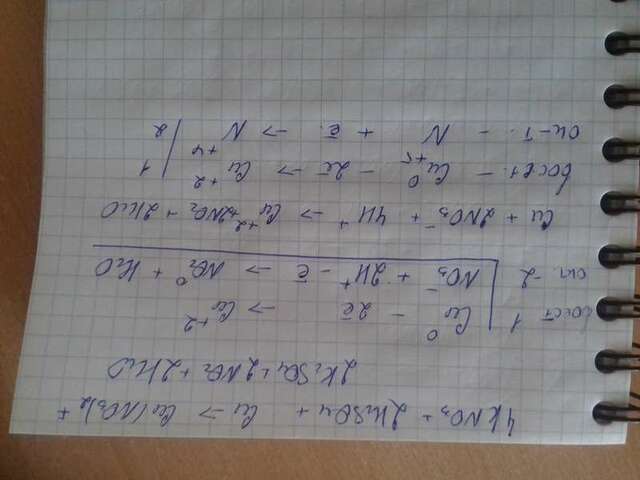 4KNO₃ + 2H₂SO₄ + Cu → Cu(NO₃)₂ +
2K₂SO₄ + 2NO₂ + 2H₂O
восст 1 | Cu⁰ - 2ē → Cu⁺²
ок-ль 2 | NO₃⁻ + 2H⁺ - ē → NO₂⁰ + H₂O
Cu + 2NO₃⁻ + 4H⁺ → Cu⁺² + 2NO₂ + 2H₂O
восст. - Cu⁰ - 2ē → Cu⁺² | 1
ок-т. - N⁺⁵ + ē → N⁺⁴ | 2